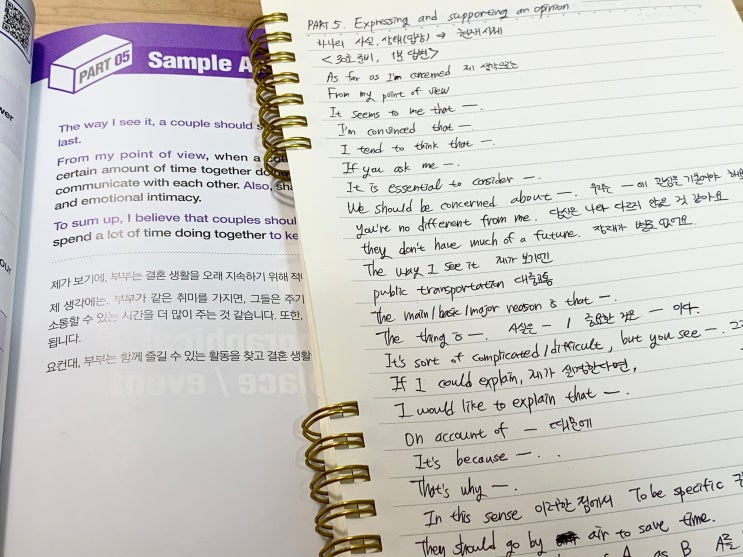 PART 05 Sample A
The way I see it, a couple should s
last.
From my point of view, when a cou
certain amount of time together do
communicate with each other. Also, sha
and emotional intimacy.
To sum up, I believe that couples shoul
spend a lot of time doing together to ke
제가 보기에, 부부는 결혼 생활을 오래 지속하기 위해 적
제 생각에는, 부부가 같은 취미를 가지면, 그들은 주기
소통할 수 있는 시간을 더 많이 주는 것 같습니다. 또한,
됩니다.
요컨대, 부부는 함께 즐길 수 있는 활동을 찾고 결혼 생활
PART 5. Expressing and supporting an opinion
하나의 사실, 상태(입장) ⇒ 현재시제
준비, 1분 답변>
As far as I'm concerned 제 생각으로는
From my point of view
It seems to me that —.
I'm convinced that —.
I tend to think that —.
If you ask me —.
It is essential to consider —.
We should be concerned about —. 우리는 —에 관심을 기울여야
You're no different from me. 당신은 나와 다르지 않은 것 같아요
they don't have much of a future. 장래가 별로 없어요.
The way I see it 제가 보기엔
public transportation 대중교통
The main/basic/major reason is that —.
The thing is —. 사실은 — / 중요한 것은 — 이다.
It's sort of complicated/difficult, but you see —. 그
If I could explain, 제가 설명한다면,
I would like to explain that —.
On account of — 때문에
It's because —.
That's why —.
In this sense 이러한 점에서 To be specific
They should go by air to save time.
A as B A를